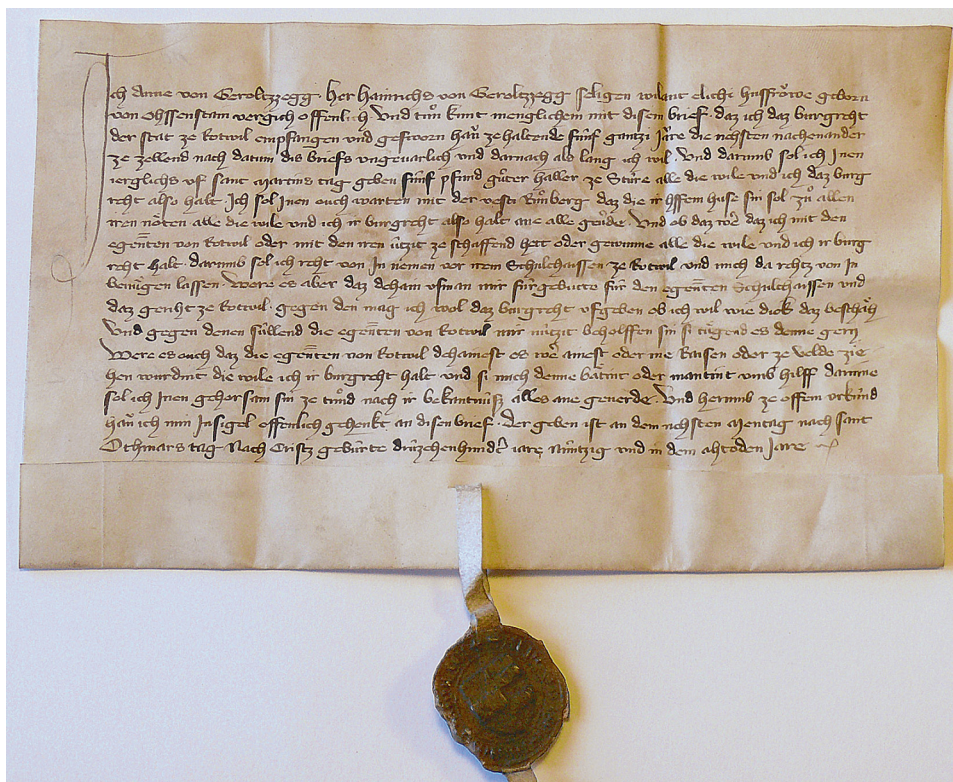 Ich Anne von Geroltzegg . Her Hainrichs von Geroltzegg seligen wilant elichi husfrowe geborn
von Ohssenstain vergich offenlich Und tůn kunt menglichem mit disem brief . daz ich daz burgreht
der stat ze Rotwil empfangen und gesworn han ze haltende fúnf gantzi Jare die nehsten nachenander
ze zellend nach datum dis briefs ungeuarlich und darnach als lang ich wil . Und darumb sol ich Inen
ierglichs uf sant Martins tag geben fúnf pfund gůter haller ze Stúre alle die wile und ich daz burg
reht also halt Ich sol Inen ouch warten mit der vesti daz die ir offem huse sin sol zů allen
iren nöten alle die wile und ich ir burgreht also halt ane alle geuärde . Und ob daz wer daz ich mit den
egen̄ten von Rotwil oder mit den iren útzit ze schaffend hett oder gewunne alle die wile und ich ir burg
reht halt . darumb sol ich reht von In nemen vor irem Schulthaissen ze Rotwil und mich da rehtz von In
benúgen lassen . Were es aber daz dehain usman mir fúrgebutte fúr den egen̄ten Schulthaissen und
daz geriht ze Rotwil . gegen den mag ich wol daz burgreht ufgeben ob ich wil wie dick daz beschäh
Und gegen denen súllend die egen̄ten von Rotwil mir nútzit beholffen sin si túgend es denne gern
Were es ouch daz die egen̄ten von Rotwil dehainest es wer ainest oder me Raisen oder ze velde zie
hen wurdint die wile ich ir burgreht halt und si mich denne bätint oder mantint umb hilff darinne
sol ich Inen gehorsam sin ze tůnd nach ir bekantnúß alles ane geuerde . Und herumb ze offem urkúnd
han ich min Insigel offenlich gehenkt an disen brief . der geben ist an dem nehsten Mentag nach sant
Othmars tag Nach Cristz gebúrte drúzehenhundert iare Núntzig und in dem ahtoden Jare